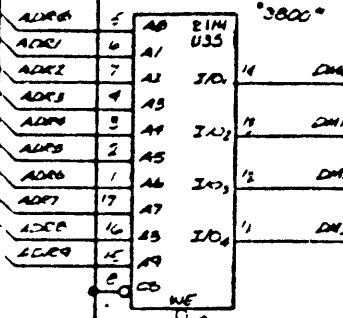 "3800"
ADR0 5 A0 2114
ADR1 6 A1 U35
ADR2 7 A2 I/O1 14 DM
ADR3 4 A3
ADR4 3 A4 I/O2 13 DM
ADR5 2 A5
ADR6 1 A6 I/O3 12 DM
ADR7 17 A7
ADR8 16 A8 I/O4 11 DM
ADR9 15 A9
8 CS
WE